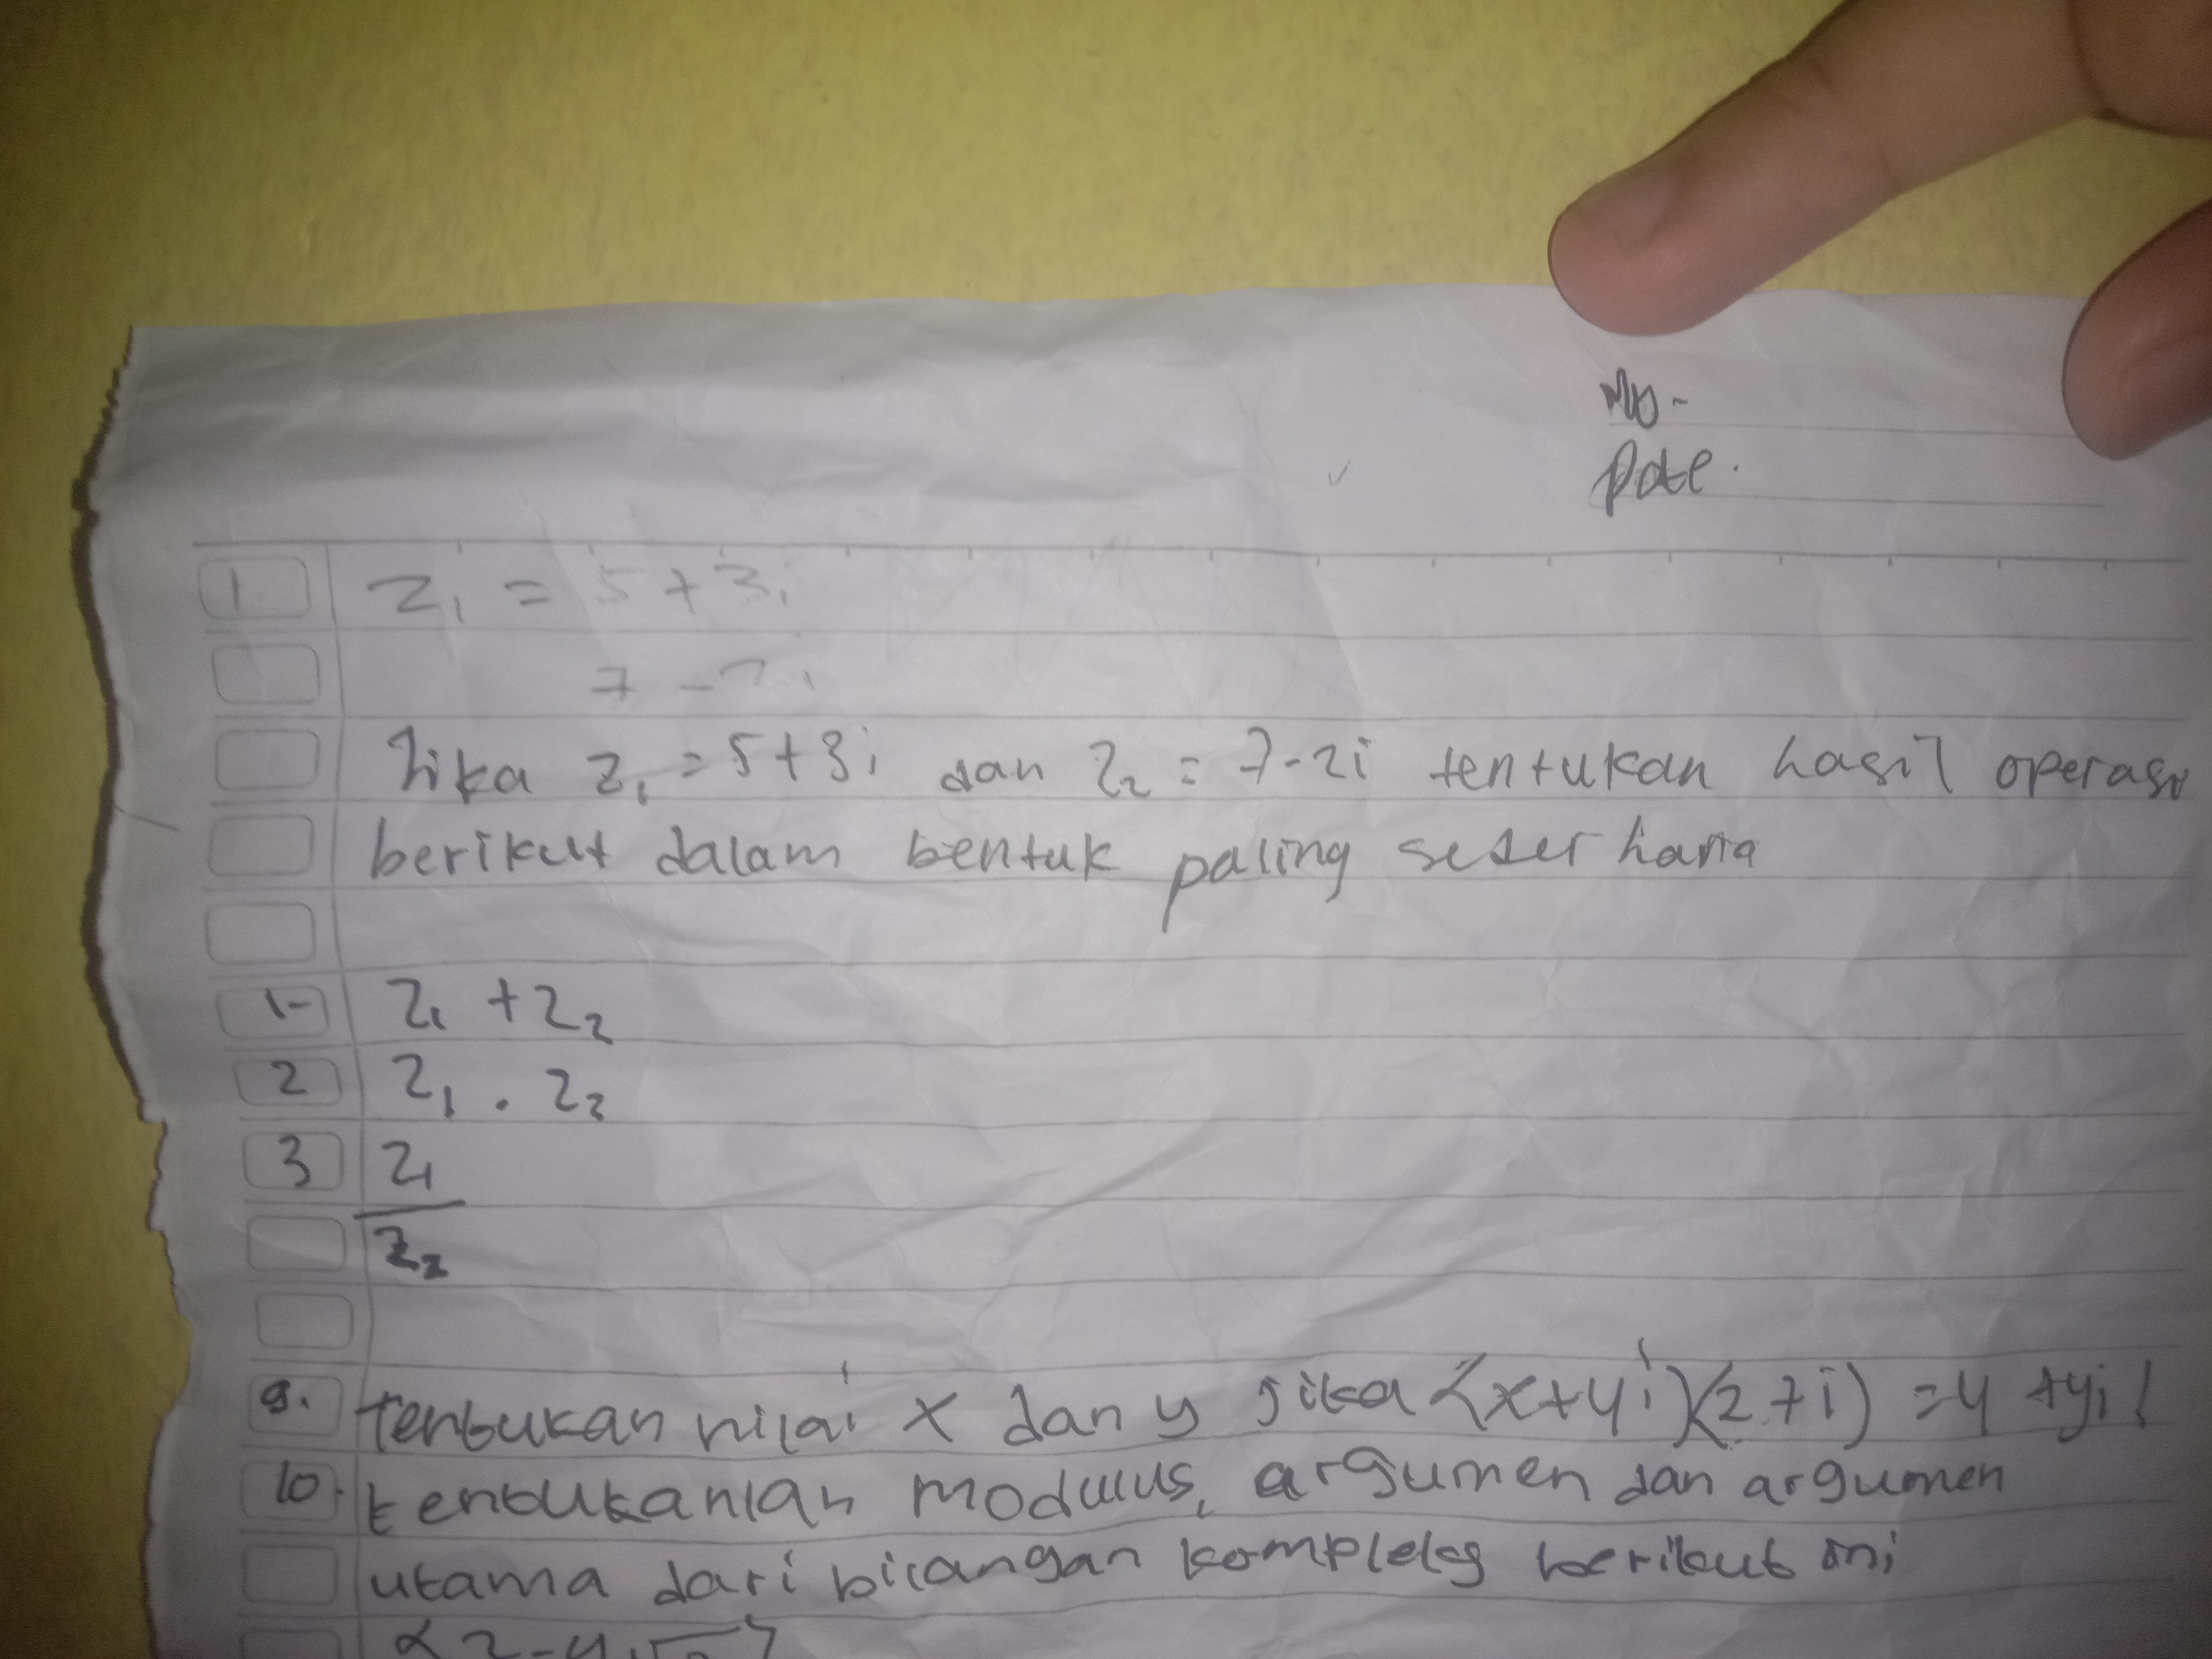 No.
Date.
1. Z₁ = 5 + 3i
7 - 2i
Jika z₁ = 5+3i dan z₂ = 7-2i tentukan hasil operasi
berikut dalam bentuk paling sederhana
1- Z₁ + Z₂
2 Z₁ . Z₂
3 Z₁
Z₂
9. tentukan nilai x dan y jika (x+yi)(2+i) = 4 + yi!
10. tentukanlah modulus, argumen dan argumen
utama dari bilangan kompleks berikut ini